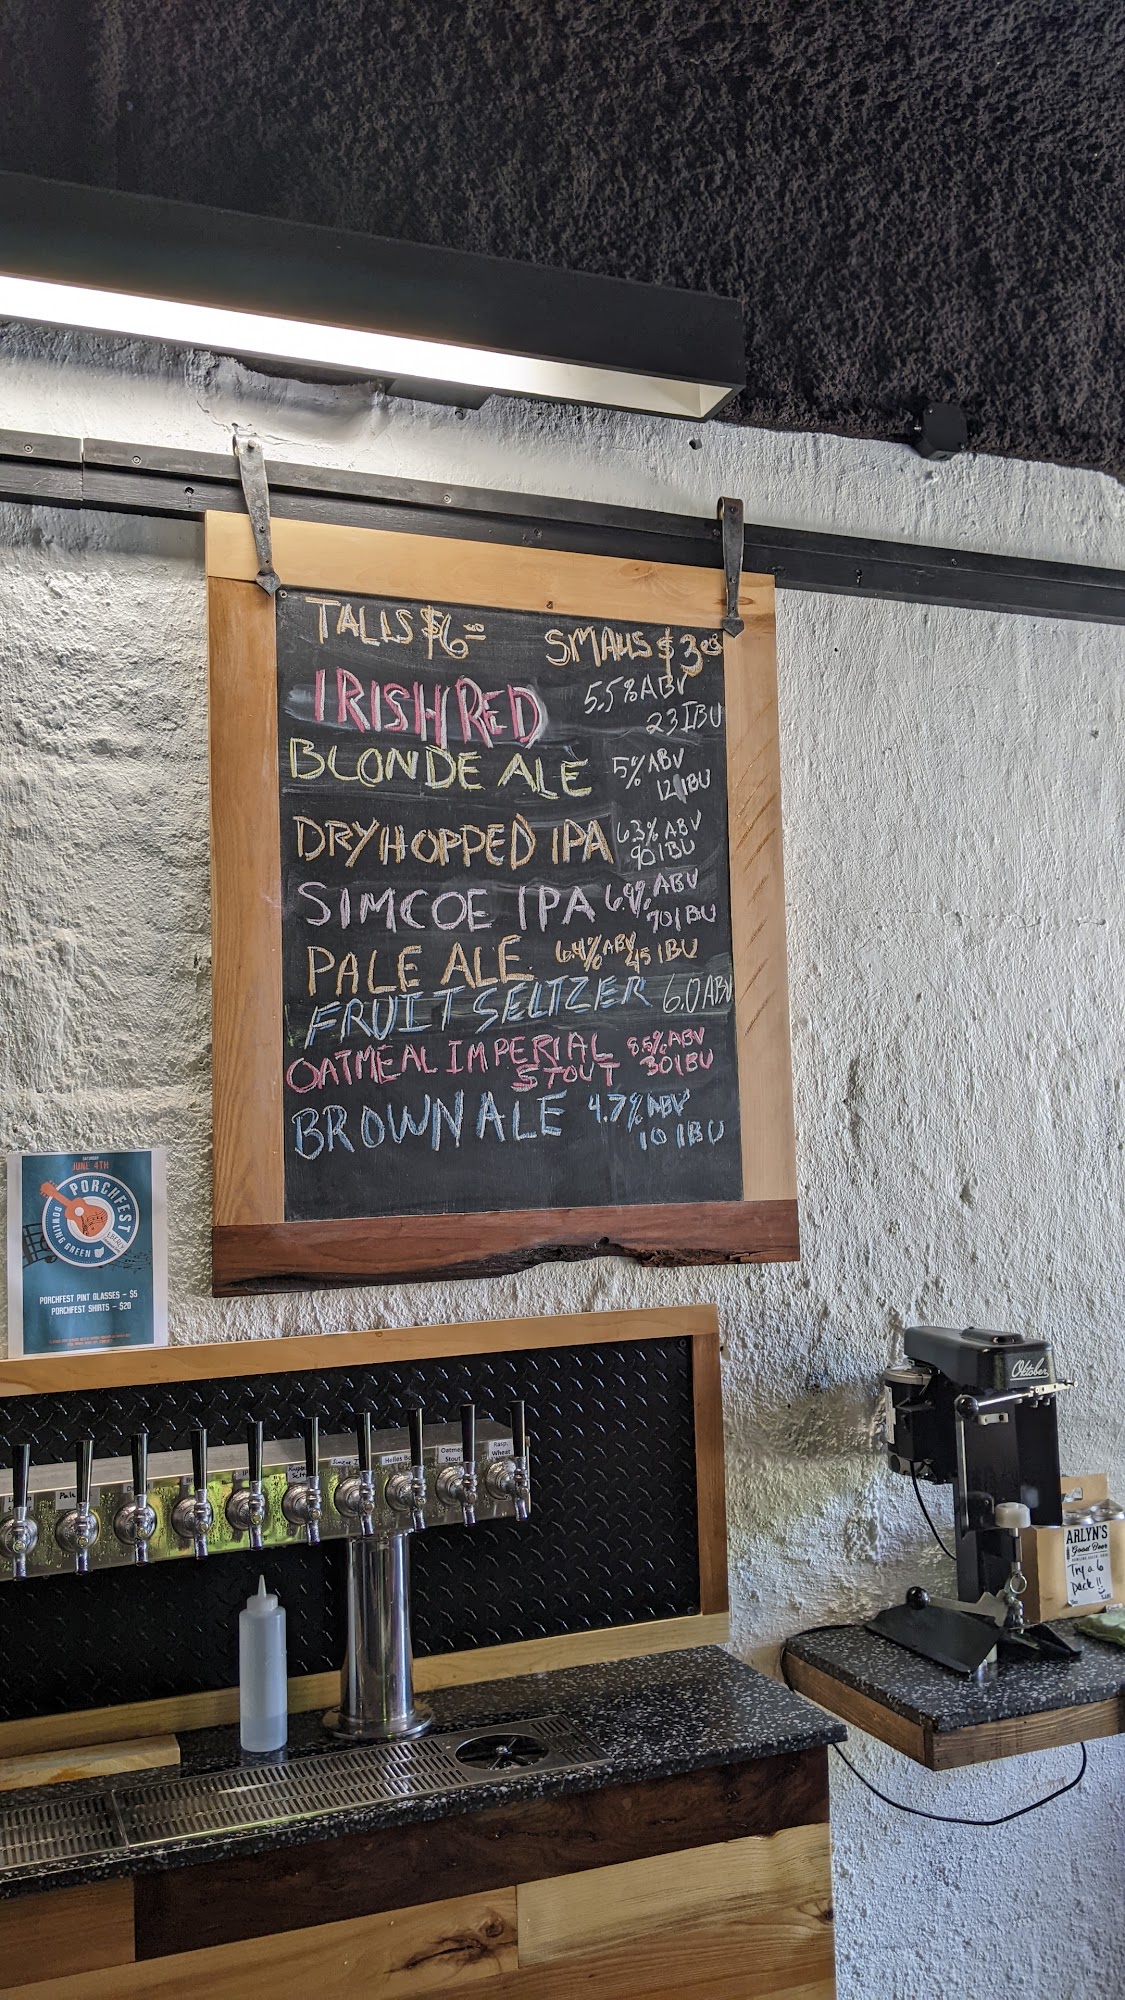 TALLS $6.00 SMALLS $3.00
IRISH RED 5.5% ABV
23 IBU
BLONDE ALE 5% ABV
12 IBU
DRY HOPPED IPA 6.3% ABV
90 IBU
SIMCOE IPA 6.9% ABV
70 IBU
PALE ALE 6.4% ABV 45 IBU
FRUIT SELTZER 6.0 ABV
OATMEAL IMPERIAL 8.5% ABV
STOUT 30 IBU
BROWN ALE 4.7% ABV
10 IBU
SATURDAY
JUNE 4TH
PORCHFEST
BOWLING GREEN
PORCHFEST PINT GLASSES - $5
PORCHFEST SHIRTS - $20
Pale
Oatmeal
Stout
Rasp.
Wheat
Oktober
ARLYN'S
Good Beer
Try a 6
Pack!!